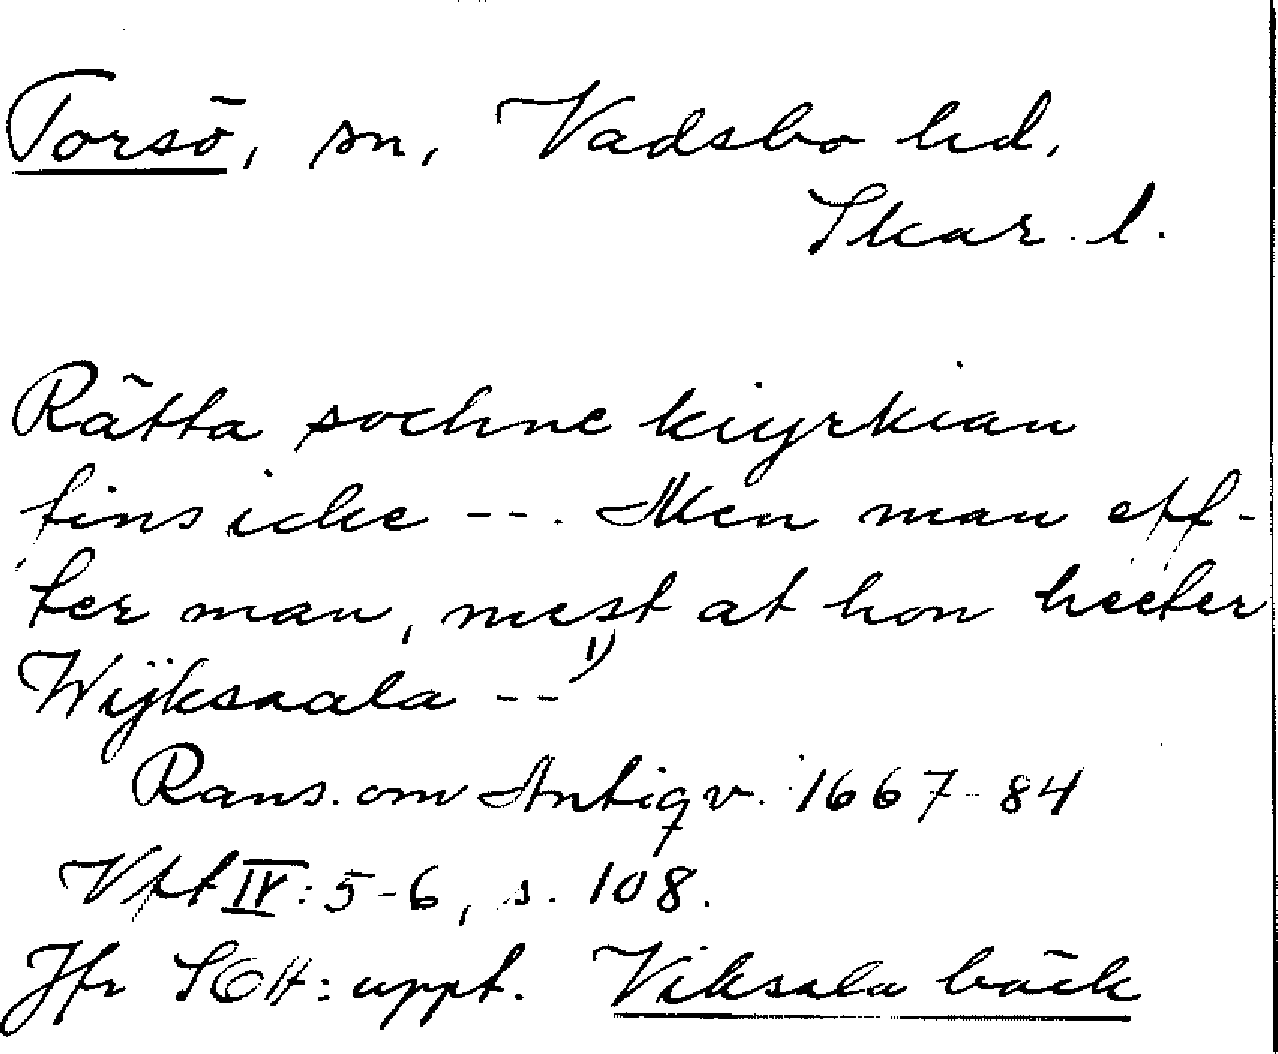 Torsö, sn, Vadsbo hd,
Skar. l.
Rätta sochne kiyrkian
fins icke --. Men man eff-
ter man, mest at hon heeter
Wijksaala --1)
Rans. om Antiqv. 1667-84
Vfft IV: 5-6, s. 108.
Jfr SOH: uppt. Viksala bäck